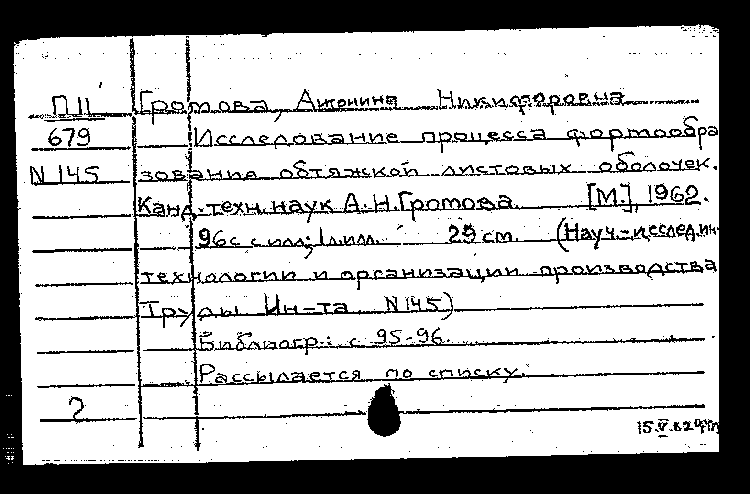 П11 Громова, Антонина Никифоровна
679 Исследование процесса формообра
N 145 зования обтяжкой листовых оболочек.
Канд. техн. наук А.Н. Громова [М.], 1962.
96с с илл; 1л.илл. 29 cm. (Науч.-исслед.ин-
технологии и организации производства
Труды Ин-та N145)
Библиогр.: с 95-96.
Рассылается по списку.
2
15.V.62